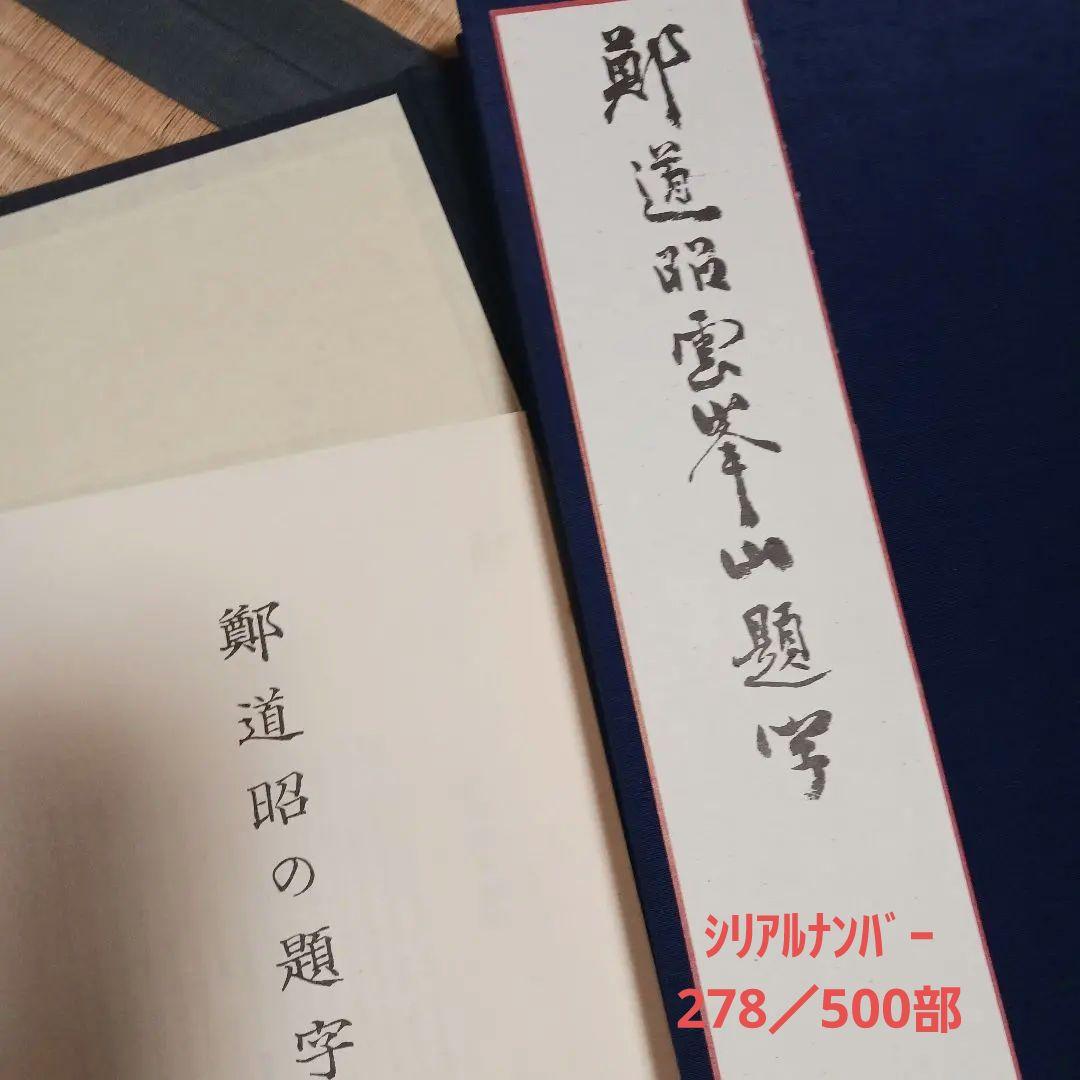 鄭道昭雲峯山題字
鄭道昭の題字
ｼﾘｱﾙﾅﾝﾊﾞｰ
278／500部